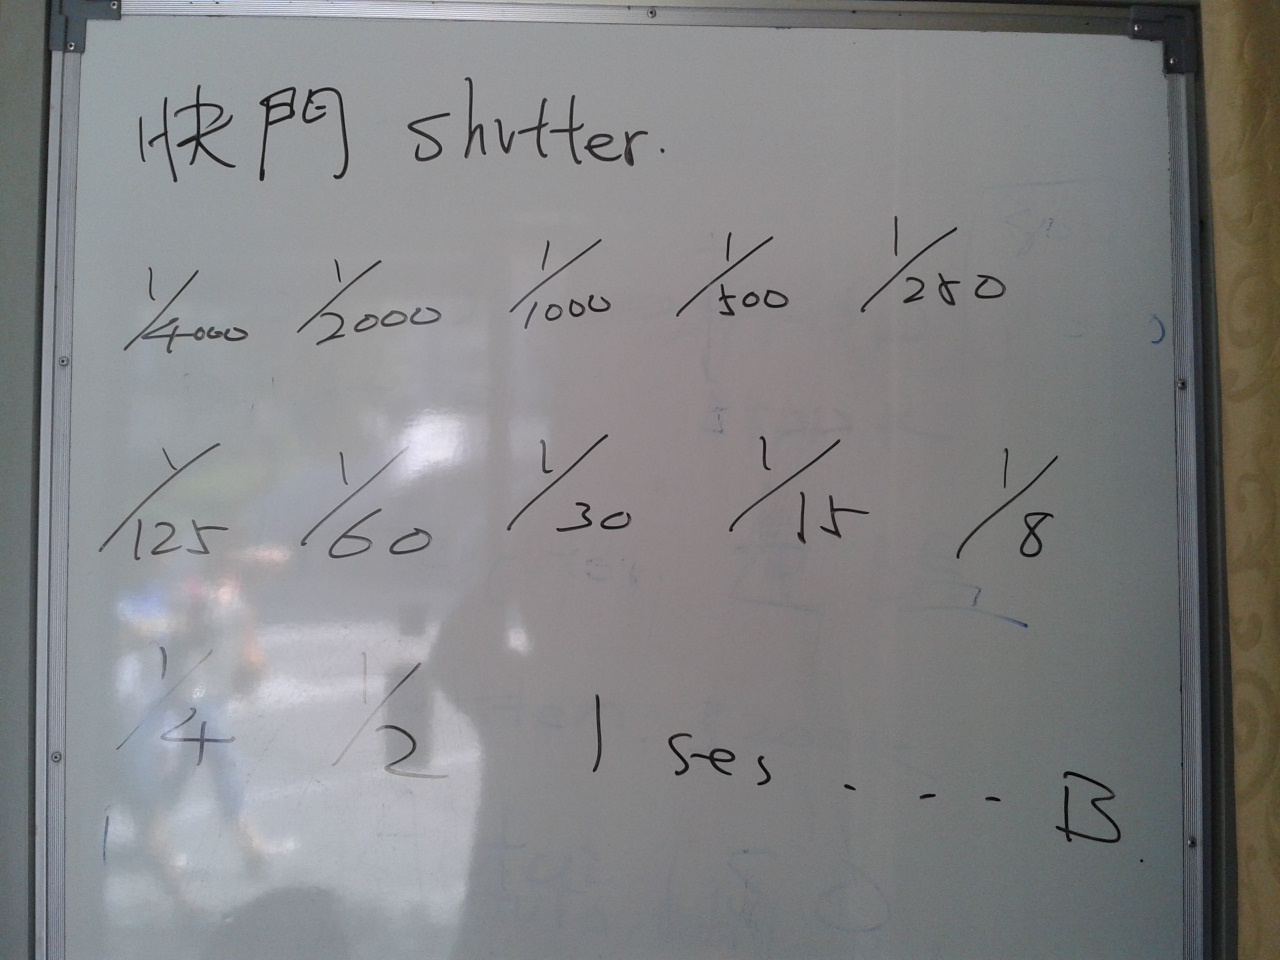 快門 shutter.
1/4000 1/2000 1/1000 1/500 1/250
1/125 1/60 1/30 1/15 1/8
1/4 1/2 1 ses . - - B